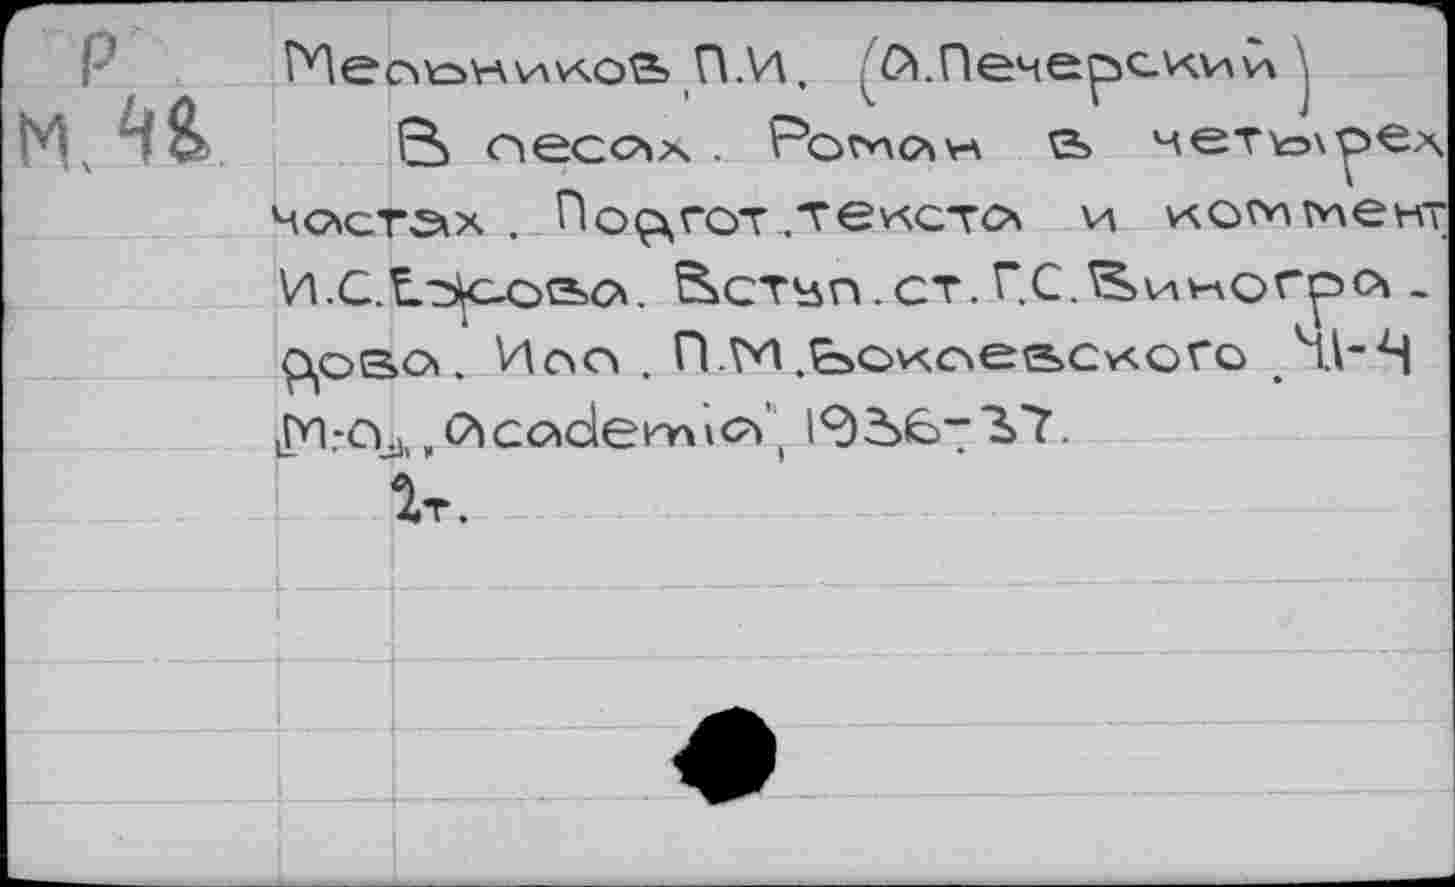 Р
М. 48
Мельников, П.И. (А.Печерский)
В лесах. Роман в четырех
частях. Подгот. текста и коммент
И.С.Ежова. Вступ. ст. Г.С.Виногра-
дова. Илл. П.М.Боклевского. Ч.1-4
М.-Л., „Academia", 1936-37.
2т.